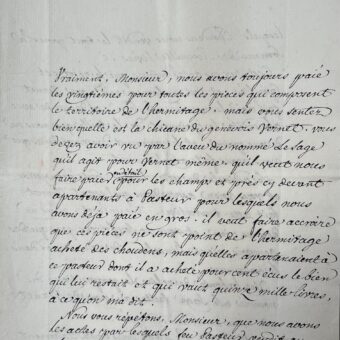 Vraiment, Monsieur, nous avons toujours paié
les vingtiémes pour toutes les pieces qui composent
le territoire de l'hermitage. mais vous sentez
bien quelle est la chicane du genevois Vernet. vous
devez avoir vu par l'aveu du nommé Le Sage
qu'il agit pour Vernet même, qu'il veut nous
faire paier en détail pour les champs et prés cy devant
apartenants à Pasteur pour lesquels nous
avons déja paié en gros. il veut faire accroire
que ces piéces ne sont point de l'hermitage
acheté des choudens, mais qu'elles apartenaient à
ce pasteur dont il a acheté pour cent écus le bien
qui lui restait et qui vaut quinze mille livres,
à ce qu'on m'a dit.
Nous vous répétons, Monsieur, que nous avons
les actes par lesquels feu Pasteur vendit